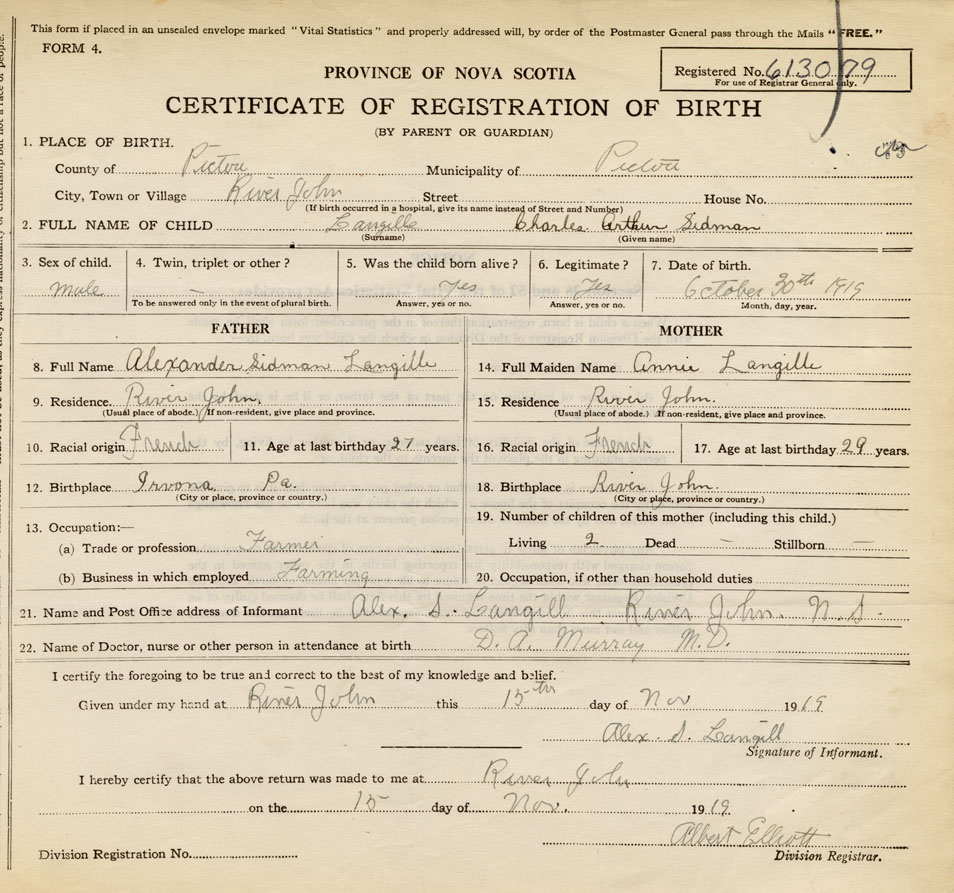 This form if placed in an unsealed envelope marked "Vital Statistics" and properly addressed will, by order of the Postmaster General pass through the Mails "FREE."
FORM 4.
PROVINCE OF NOVA SCOTIA
Registered No. 613079
For use of Registrar General only.
CERTIFICATE OF REGISTRATION OF BIRTH
(BY PARENT OR GUARDIAN)
1. PLACE OF BIRTH.
County of Pictou Municipality of Pictou
City, Town or Village River John Street House No.
(If birth occurred in a hospital, give its name instead of Street and Number)
2. FULL NAME OF CHILD Langille Charles Arthur Sidman
(Surname) (Given name)
3. Sex of child. 4. Twin, triplet or other? 5. Was the child born alive? 6. Legitimate? 7. Date of birth.
Male — Yes Yes October 30th 1919
To be answered only in the event of plural birth. Answer, yes or no. Answer, yes or no. Month, day, year.
FATHER
8. Full Name Alexander Sidman Langille
9. Residence. River John.
(Usual place of abode.) If non-resident, give place and province.
10. Racial origin French 11. Age at last birthday 27 years.
12. Birthplace Irvona Pa.
(City or place, province or country.)
13. Occupation:—
(a) Trade or profession Farmer
(b) Business in which employed Farming
MOTHER
14. Full Maiden Name Annie Langille
15. Residence River John.
(Usual place of abode.) If non-resident, give place and province.
16. Racial origin French 17. Age at last birthday 29 years.
18. Birthplace River John.
(City or place, province or country.)
19. Number of children of this mother (including this child.)
Living 2 Dead — Stillborn —
20. Occupation, if other than household duties
21. Name and Post Office address of Informant Alex. S. Langill River John. N.S.
22. Name of Doctor, nurse or other person in attendance at birth D. A. Murray M.D.
I certify the foregoing to be true and correct to the best of my knowledge and belief.
Given under my hand at River John this 15th day of Nov 1919
Alex. S. Langill
Signature of Informant.
I hereby certify that the above return was made to me at River John
on the 15 day of Nov. 1919
Albert Elliott
Division Registrar.
Division Registration No.